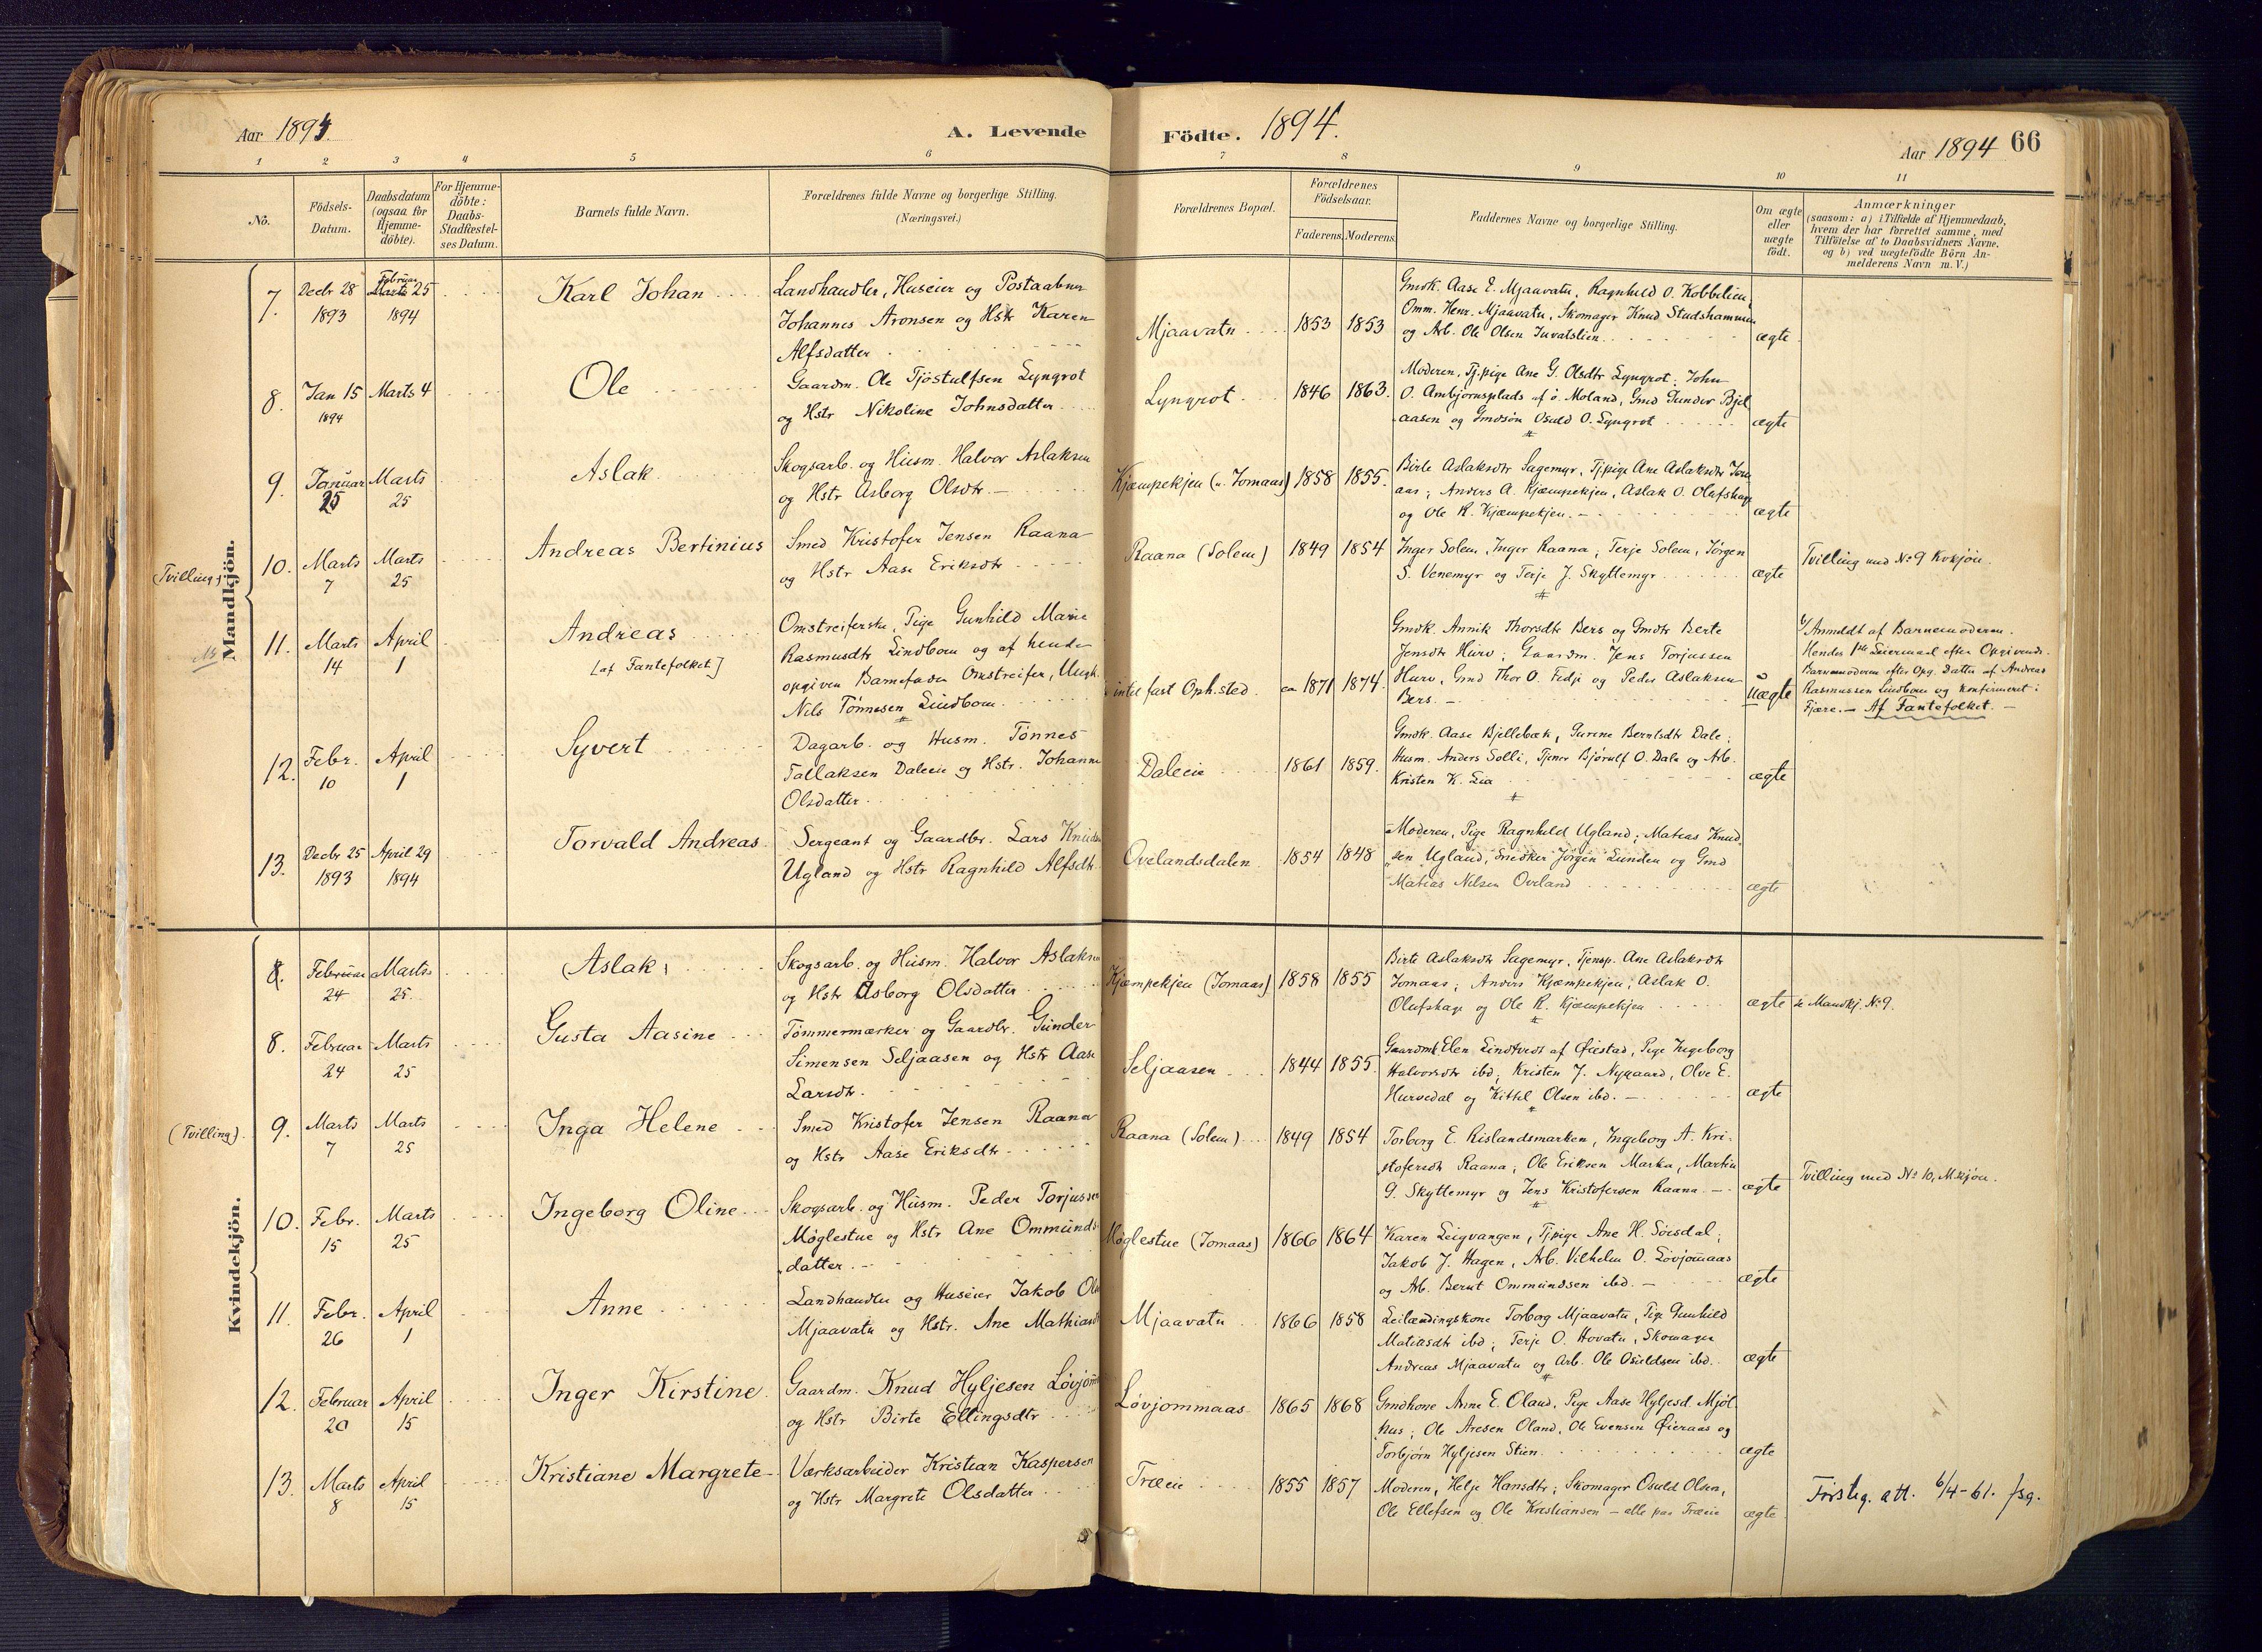 Aar 1894.
A. Levende
Födte. 1894.
Aar 1894 66
1 2 3 4 5 6 7 8 9 10 11
No.
Födsels-
Datum.
Daabsdatum
(ogsaa for
Hjemme-
döbte).
For Hjemme-
döbte:
Daabs-
Stadfæstel-
ses Datum.
Barnets fulde Navn.
Forældrenes fulde Navne og borgerlige Stilling.
(Næringsvei.)
Forældrenes Bopæl.
Forældrenes
Födselsaar.
Faderens. Moderens.
Faddernes Navne og borgerlige Stilling.
Om ægte
eller
uægte
födt.
Anmærkninger
(saasom: a) i Tilfælde af Hjemmedaab,
hvem der har forrettet samme, med
Tilföielse af to Daabsvidners Navne,
og b) ved uægtefödte Börn An-
melderens Navn m. V.)
Mandkjön.
7. Decbr 28 1893
Februar
Marts 25 1894
Karl Johan
Landhandler, Huseier og Postaabner
Johannes Aronsen og Hstr Karen
Alfsdatter
Mjaavatn 1853 1853
Gmdk. Aase E. Mjaavatn, Ragnhild O. Kobbelien,
Omm. Henr. Mjaavatn, Skomager Knud Studshammer
og Arb. Ole Olsen
ægte
8. Jan 15 1894 Marts 4
Ole
Gaardm. Ole Tjostulfsen Lyngrot
og Hstr Nikoline Johnsdatter
Lyngrot 1846 1863.
Moderen, Tj.pige Ane G. Olsdtr Lyngrot; John
O. Ambjornsplads af ö. Moland, Gmd Gunder Bjel
aasen og Gmdsön Osuld O. Lyngrot
ægte
9. Januar 25 Marts 25
Aslak
Skogsarb. og Husm. Halvor Aslaksen
og Hstr Asborg Olsdtr.
Kjæmpekjen (u. Jomaas) 1858 1855.
Birte Aslaksdtr Sagemyr, Tjpige Ane Aslaksdtr Jom
aas; Anders A. Kjæmpekjen, Aslak O. Olafshage
og Ole R. Kjæmpekjen.
ægte
(Tvilling)
10. Marts 7 Marts 25
Andreas Bertinius
Smed Kristofer Jensen Raana
og Hstr Aase Eriksdtr
Raana (Solem) 1849 1854
Inger Solem, Inger Raana; Terje Solem, Jörgen
S. Venemyr og Terje J. Skyttemyr
ægte
Tvilling med No 9 Kvkjön.
11. Marts 14 April 1
Andreas
[af Fantefolket]
Omstreiferske, Pige Gunhild Marie
Rasmusdtr Lindbom og af hende
opgiven Barnefader Omstreifer, Ungk.
Nils Tönnesen Lindbom
intet fast Oph.sted. ca 1871 1874.
Gmdk. Annik Thorsdtr Bers og Gmdtr Berte
Jensdtr Hurv; Gaardm. Jens Torjussen
Hurv, Gmd Thor O. Fidje og Peder Aslaksen
Bers.
uægte
b/ Anmeldt af Barnemoderen.
Hendes 1ste Leiermaal efter Opgivende.
Barnemoderen efter Opg. Datter af Andreas
Rasmussen Lindbom og konfirmeret i
Fjære. — Af Fantefolket. —
12. Febr. 10 April 1
Syvert
Dagarb. og Husm. Tönnes
Tallaksen Daleeie og Hstr. Johanne
Olsdatter
Daleeie 1861 1859.
Gmdk. Aase Bjellebæk, Gurine Berntsdtr Dale;
Husm. Anders Solli, Tjener Bjørulf O. Dale og Arb.
Kristen K. Lia
ægte
13. Decbr 25 1893 April 29 1894
Torvald Andreas
Sergeant og Gaardbr. Lars Knudsen
Ugland og Hstr Ragnhild Alfsdtr
Ovelandsdalen 1854 1848
Moderen, Pige Ragnhild Ugland; Matias Knud-
sen Ugland, Snedker Jörgen Lunden og Gmd
Matias Nilsen Oveland
ægte
Kvindekjön.
8. Februar 24 Marts 25.
(Aslak)
Skogsarb. og Husm. Halvor Aslaksen
og Hstr Asborg Olsdatter
Kjæmpekjen (Jomaas) 1858 1855
Birte Aslaksdtr Sagemyr, Tjensp. Ane Aslaksdtr
Jomaas; Anders Kjæmpekjen; Aslak O.
Olufshage og Ole R. Kjæmpekjen
ægte
se Mandkj. No 9.
8. Februar 24 Marts 25
Gusta Aasine
Tömmermærker og Gaardbr. Gunder
Simensen Seljaasen og Hstr Aase
Larsdtr.
Seljaasen 1844 1855.
Gaardmk Elen Lindtveit af Øiestad, Pige Ingeborg
Halvorsdtr ibd; Kristen J. Nygaard, Olve E.
Hurvedal og Kittil Olsen ibd.
ægte
(Tvilling).
9. Marts 7 Marts 25
Inga Helene
Smed Kristofer Jensen Raana
og Hstr Aase Eriksdtr
Raana (Solem) 1849 1854
Torborg E. Rislandsmarken, Ingeborg A. Kri-
stofersdtr Raana; Ole Eriksen Marka, Martin
G. Skyttemyr og Jens Kristofersen Raana.
ægte
Tvilling med No 10, Mkjön.
10. Febr. 15 Marts 25
Ingeborg Oline
Skogsarb. og Husm. Peder Torjussen
Møglestue og Hstr Ane Ommunds-
datter
Møglestue (Jomaas) 1866 1864
Karen Leigvangen, Tjpige Ane H. Soesdal;
Jakob J. Hagen, Arb. Vilhelm O. Løvjomaas
og Arb. Bernt Ommundsen ibd.
ægte
11. Febr. 26 April 1
Anne
Landhandler og Huseier Jakob Ols
Mjaavatn og Hstr. Ane Mathiasdtr
Mjaavatn 1866 1858
Leilændingskone Torborg Mjaavatn, Pige Gunhild
Matiasdtr ibd; Terje O. Hovatn, Skomager
Andreas Mjaavatn og Arb. Ole Osuldsen ibd.
ægte
12. Februar 20 April 15
Inger Kirstine
Gaardm. Knud Hyljesen Løvjom
og Hstr Birte Ellingsdtr
Løvjommaas 1865 1868
Gmdkone Anne E. Oland, Pige Aase Hyljesd. Mjöl-
hus; Ole Aresen Oland, Ole Evensen Øieraas og
Torbjørn Hyljesen Stien.
ægte
13. Marts 8 April 15
Kristiane Margrete
Værksarbeider Kristian Kaspersen
og Hstr Margrete Olsdatter
Træeie 1855 1857
Moderen, Helje Hansdtr; Skomager Osuld Olsen,
Ole Ellefsen og Ole Kristiansen — alle paa Træeie
ægte
Førsteg. att. 6/4-61. fsg.